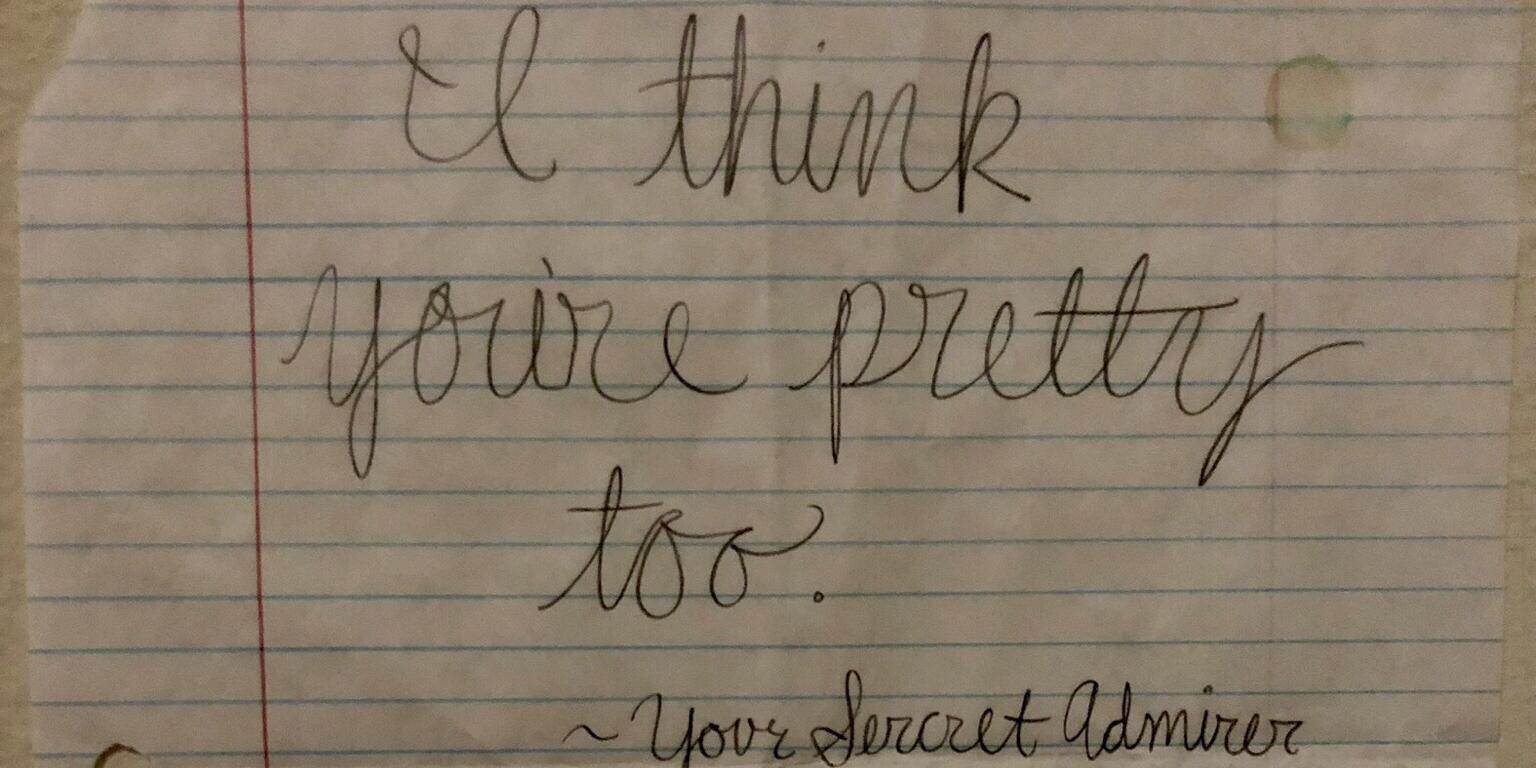 I think
you're pretty
too.
~ Your Sercret Admirer